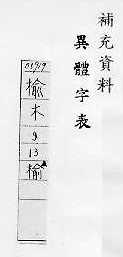 補充資料
異體字表
01919
楡
木
9
13
榆